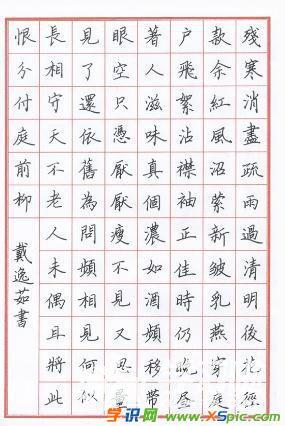 殘寒消盡疏雨過清明後花徑
款余紅風沼縈新皺乳燕穿庭
户飛絮沾襟袖正佳時仍晚昼
著人滋味真個濃如酒頻移帶
眼空只憑厭厭瘦不見又思量
見了還依舊為問頻相見何似
長相守天不老人未偶耳將此
恨分付庭前柳
戴逸茹書
学识网 www.XSpic.com